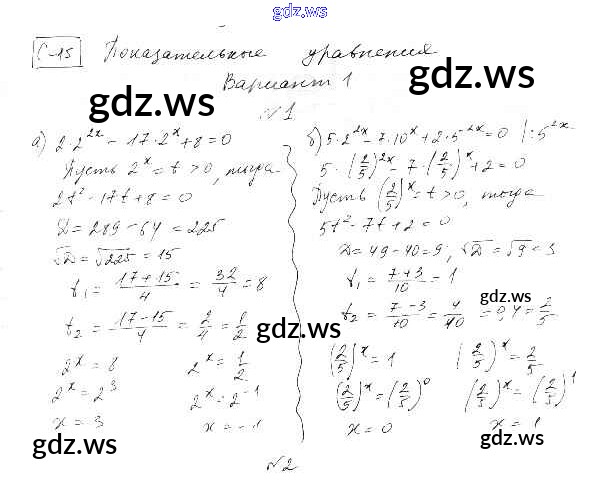 gdz.ws
С-15 Показательные уравнения
gdz.ws
Вариант 1
gdz.ws
№1
а) 2·2^{2x} - 17·2^x + 8 = 0
Пусть 2^x = t > 0, тогда
2t² - 17t + 8 = 0
D = 289 - 64 = 225
√D = √225 = 15
t₁ = (17+15)/4 = 32/4 = 8
t₂ = (17-15)/4 = 2/4 = 1/2
gdz.ws
2^x = 8   2^x = 1/2
2^x = 2³   2^x = 2^{-1}
x = 3   x = -1
gdz.ws
б) 5·2^{2x} - 7·10^x + 2·5^{2x} = 0 |: 5^{2x}
5·(2/5)^{2x} - 7·(2/5)^x + 2 = 0
Пусть (2/5)^x = t > 0, тогда
gdz.ws
5t² - 7t + 2 = 0
D = 49 - 40 = 9; √D = √9 = 3
t₁ = (7+3)/10 = 1
gdz.ws
t₂ = (7-3)/10 = 4/10 = 0,4 = 2/5
(2/5)^x = 1   (2/5)^x = 2/5
(2/5)^x = (2/5)^0   (2/5)^x = (2/5)^1
x = 0   x = 1
gdz.ws
№2
gdz.ws